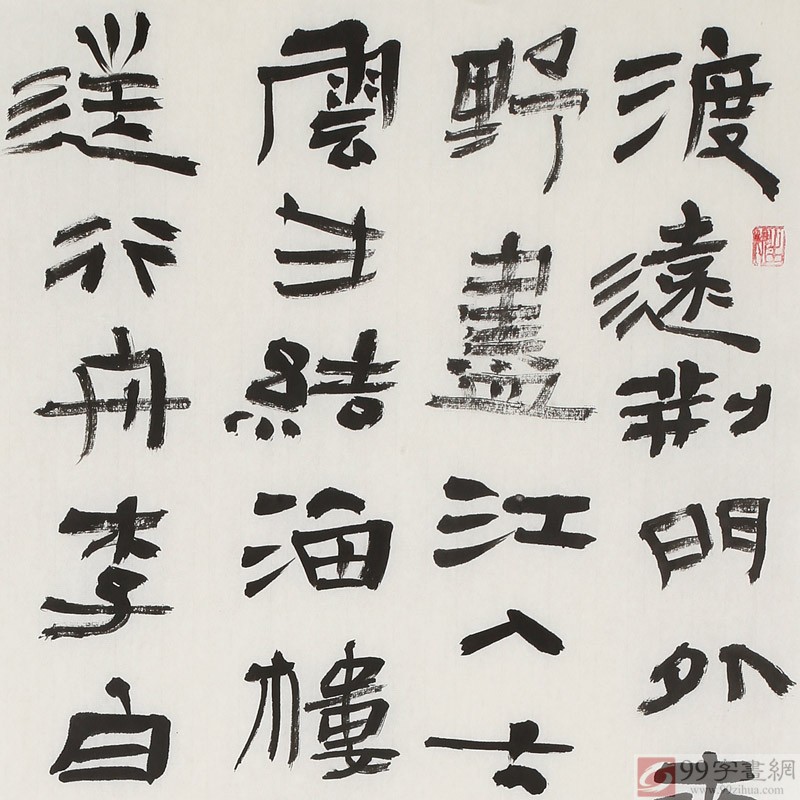 渡遠荊門外
野盡江入大
雲生結海樓
送行舟李白
99字畫網
www.99zihua.com